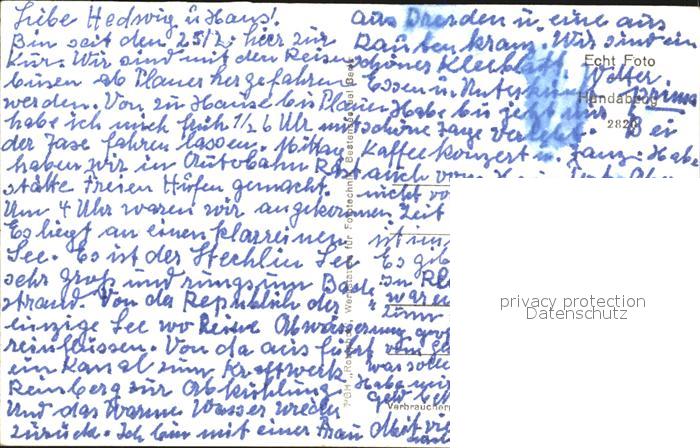 Liebe Hedwig u. Hans!
Bin seit den 25/2. hier zur
Kur. Wir sind mit den Reise
bussen ab Plauen hergefahren
werden. Von zu Hause bis Plauen
habe ich mich früh 1/2 6 Uhr mit
der Taxe fahren lassen. Mittag
haben wir in Autobahn Rast
stätte Freien Hüfen gemacht.
Um 4 Uhr waren wir angekommen
Es liegt an einen klarreinen
See. Es ist der Stechlin See
sehr groß und rungsum Bade
strand. Von der Republick der
einzige See wo keine Abwässerung
reinflüssen. Von da aus führt
ein Kanal zum Kraftwerk
Reinsberg zur Abkühlung.
Und das Warme Wasser wieder
zurück. Ich bin mit einer Frau
aus Dresden u. eine aus
Rautenkranz. Wir sind ein
schöner Kleeblatt. Wetter
Essen u. Unterkunft prima
Habe bis jetzt nur
schöne Tage verlebt. Bei
Kaffeekonzert u. Tanz. Habe
auch vom
nicht vo
Zeit
ist im
Es gib
in Re
war e
zum
vom
was solle
Habe mir
geld be
Mit vie
Echt Foto
Handabzug
2820
Verbraucherp
privacy protection
Datenschutz